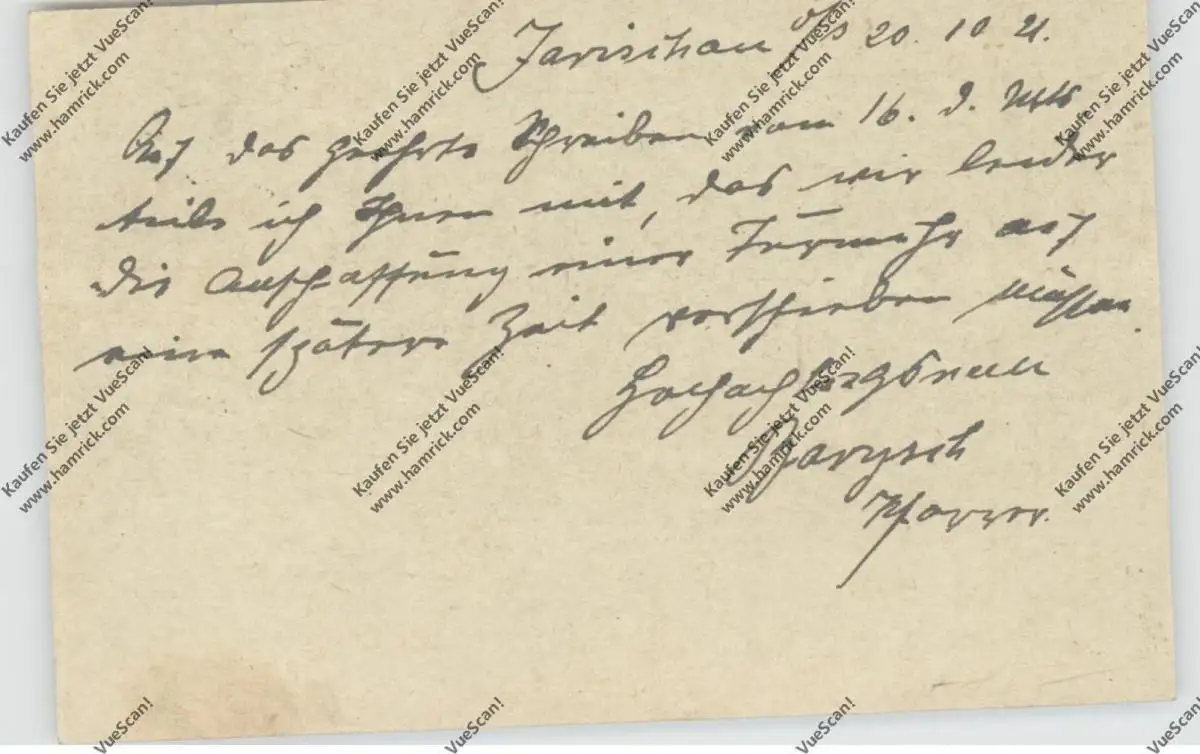 Jarischau O/S 20. 10 21.
Auf das geehrte Schreiben vom 16. d. Mts
teile ich Ihnen mit, das wir leider
die Anschaffung einer Turmuhr auf
eine spätere Zeit verschieben müssen.
Hochachtungsvoll
Pfarrer.
Kaufen Sie jetzt VueScan!
www.hamrick.com
Kaufen Sie jetzt VueScan!
www.hamrick.com
Kaufen Sie jetzt VueScan!
www.hamrick.com
Kaufen Sie jetzt VueScan!
www.hamrick.com
Kaufen Sie jetzt VueScan!
www.hamrick.com
Kaufen Sie jetzt VueScan!
www.hamrick.com
Kaufen Sie jetzt VueScan!
www.hamrick.com
Kaufen Sie jetzt VueScan!
www.hamrick.com
VueScan!
VueScan!
VueScan!
VueScan!